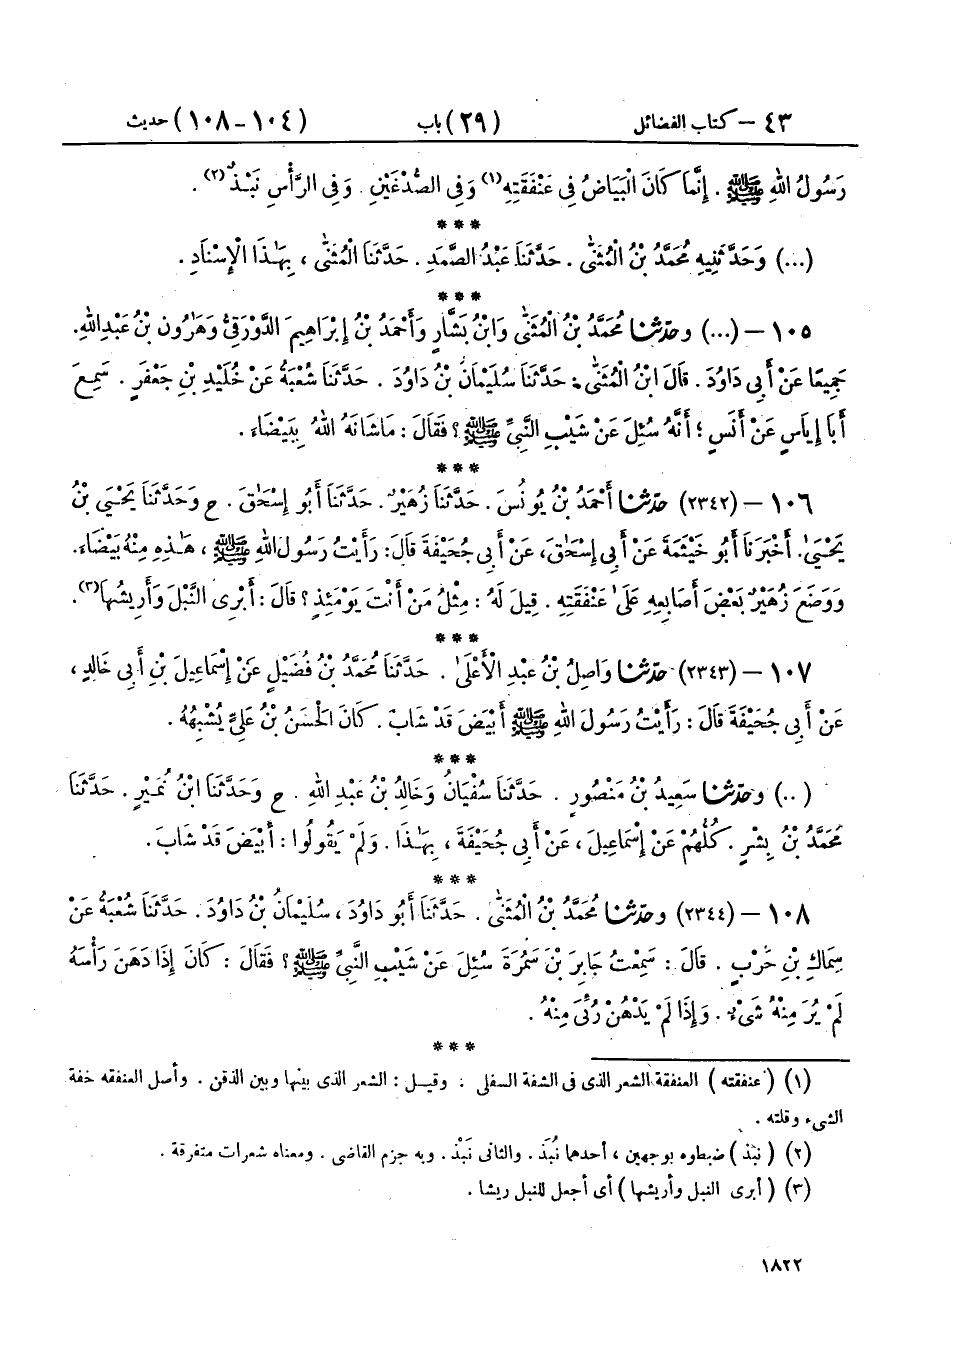 ٤٣ – كتاب الفضائل (٢٩) باب (١٠٤ – ١٠٨) حديث
رَسُولُ اللهِ ﷺ . إِنَّمَا كَانَ الْبَيَاضُ فِى عَنْفَقَتِهِ(١) وَفِى الصُّدْغَيْنِ . وَفِى الرَّأْسِ نَبْذٌ(٢) .
***
(...) وَحَدَّثَنِيهِ مُحَمَّدُ بْنُ الْمُثَنَّى . حَدَّثَنَا عَبْدُ الصَّمَدِ . حَدَّثَنَا الْمُثَنَّى ، بِهٰذَا الْإِسْنَادِ .
***
١٠٥ – (...) وحدّثنا مُحَمَّدُ بْنُ الْمُثَنَّى وَابْنُ بَشَّارٍ وَأَحْمَدُ بْنُ إِبْرَاهِيمَ الدَّوْرَقِىُّ وَهٰرُونُ بْنُ عَبْدِاللهِ.
جَمِيعًا عَنْ أَبِى دَاوُدَ . قَالَ ابْنُ الْمُثَنَّى : حَدَّثَنَا سُلَيْمَانُ بْنُ دَاوُدَ . حَدَّثَنَا شُعْبَةُ عَنْ خُلَيْدِ بْنِ جَعْفَرٍ . سَمِعَ
أَبَا إِيَاسٍ عَنْ أَنَسٍ ؛ أَنَّهُ سُئِلَ عَنْ شَيْبِ النَّبِىِّ ﷺ ؟ فَقَالَ : مَا شَانَهُ اللهُ بِبَيْضَاءَ .
***
١٠٦ – (٢٣٤٢) حدّثنا أَحْمَدُ بْنُ يُونُسَ . حَدَّثَنَا زُهَيْرٌ . حَدَّثَنَا أَبُو إِسْحَاقَ . ح وَحَدَّثَنَا يَحْيَىٰ بْنُ
يَحْيَىٰ. أَخْبَرَنَا أَبُو خَيْثَمَةَ عَنْ أَبِى إِسْحَاقَ، عَنْ أَبِى جُحَيْفَةَ قَالَ: رَأَيْتُ رَسُولَ اللهِ ﷺ ، هٰذِهِ مِنْهُ بَيْضَاءَ.
وَوَضَعَ زُهَيْرٌ بَعْضَ أَصَابِعِهِ عَلَىٰ عَنْفَقَتِهِ . قِيلَ لَهُ : مِثْلُ مَنْ أَنْتَ يَوْمَئِذٍ ؟ قَالَ : أَبْرِى النَّبْلَ وَأَرِيشُهَا(٣).
***
١٠٧ – (٢٣٤٣) حدّثنا وَاصِلُ بْنُ عَبْدِ الْأَعْلَىٰ . حَدَّثَنَا مُحَمَّدُ بْنُ فُضَيْلٍ عَنْ إِسْمَاعِيلَ بْنِ أَبِى خَالِدٍ ،
عَنْ أَبِى جُحَيْفَةَ قَالَ : رَأَيْتُ رَسُولَ اللهِ ﷺ أَبْيَضَ قَدْ شَابَ . كَانَ الْحَسَنُ بْنُ عَلِىٍّ يُشْبِهُهُ .
***
(..) وحدّثنا سَعِيدُ بْنُ مَنْصُورٍ . حَدَّثَنَا سُفْيَانُ وَخَالِدُ بْنُ عَبْدِ اللهِ . ح وَحَدَّثَنَا ابْنُ نُمَيْرٍ . حَدَّثَنَا
مُحَمَّدُ بْنُ بِشْرٍ . كُلُّهُمْ عَنْ إِسْمَاعِيلَ ، عَنْ أَبِى جُحَيْفَةَ ، بِهٰذَا . وَلَمْ يَقُولُوا : أَبْيَضَ قَدْ شَابَ .
***
١٠٨ – (٢٣٤٤) وحدّثنا مُحَمَّدُ بْنُ الْمُثَنَّى . حَدَّثَنَا أَبُو دَاوُدَ ، سُلَيْمَانُ بْنُ دَاوُدَ . حَدَّثَنَا شُعْبَةُ عَنْ
سِمَاكِ بْنِ حَرْبٍ . قَالَ : سَمِعْتُ جَابِرَ بْنَ سَمُرَةَ سُئِلَ عَنْ شَيْبِ النَّبِىِّ ﷺ ؟ فَقَالَ : كَانَ إِذَا دَهَنَ رَأْسَهُ
لَمْ يُرَ مِنْهُ شَىْءٌ . وَإِذَا لَمْ يَدْهُنْ رُئِىَ مِنْهُ .
***
(١) ( عنفقته ) العنفقة الشعر الذى فى الشفة السفلى . وقيل : الشعر الذى بينها وبين الذقن . وأصل العنفقه خفة
الشىء وقلته .
(٢) ( نبذ ) ضبطوه بوجهين ، أحدهما نُبَذ . والثانى نَبْذ . وبه جزم القاضى . ومعناه شعرات متفرقة .
(٣) ( أبرى النبل وأريشها ) أى أجعل للنبل ريشا .
١٨٢٢